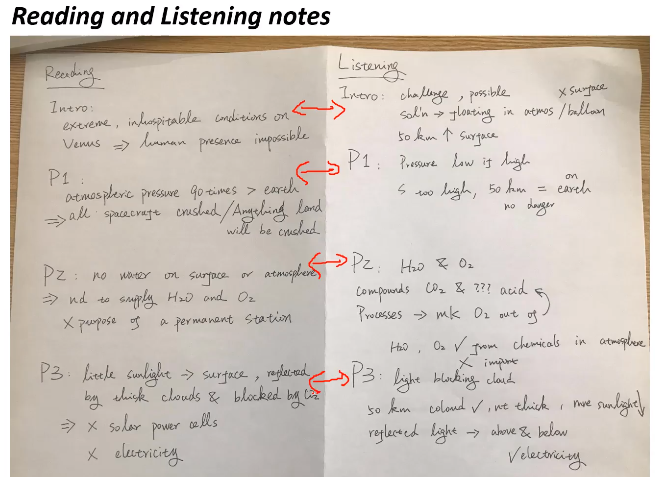 Reading and Listening notes
Reading
Intro:
extreme, inhospitable conditions on
Venus ⇒ human presence impossible
P1:
atmospheric pressure 90 times > earth
⇒ all spacecraft crushed/Anything land
will be crushed
P2: no water on surface or atmosphere
⇒ nd to supply H2O and O2
X purpose of a permanent station
P3: little sunlight → surface, reflected
by thick clouds & blocked by
⇒ X solar power cells
X electricity
Listening
Intro: challenge, possible X surface
sol'n → floating in atmos/balloon
50 km ↑ surface
P1: Pressure low if high
S too high, 50 km = on earth
no danger
P2: H2O & O2
compounds CO2 & ??? acid
Processes → mk O2 out of
H2O, O2 ✓ from chemicals in atmosphere
X import
P3: light blocking cloud
50 km ✓, nt thick, more sunlight
reflected light → above & below
✓ electricity